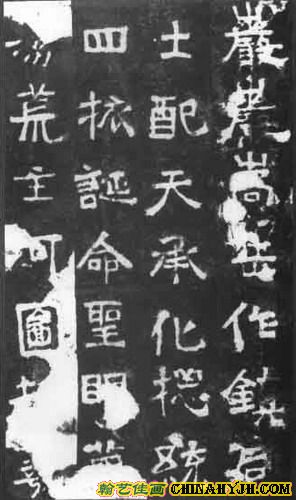 巖巖嵩岳作鎮后
土配天承化揔統
四誕命聖明
荒主河圖
翰艺佳画 CHINAHYJH.COM